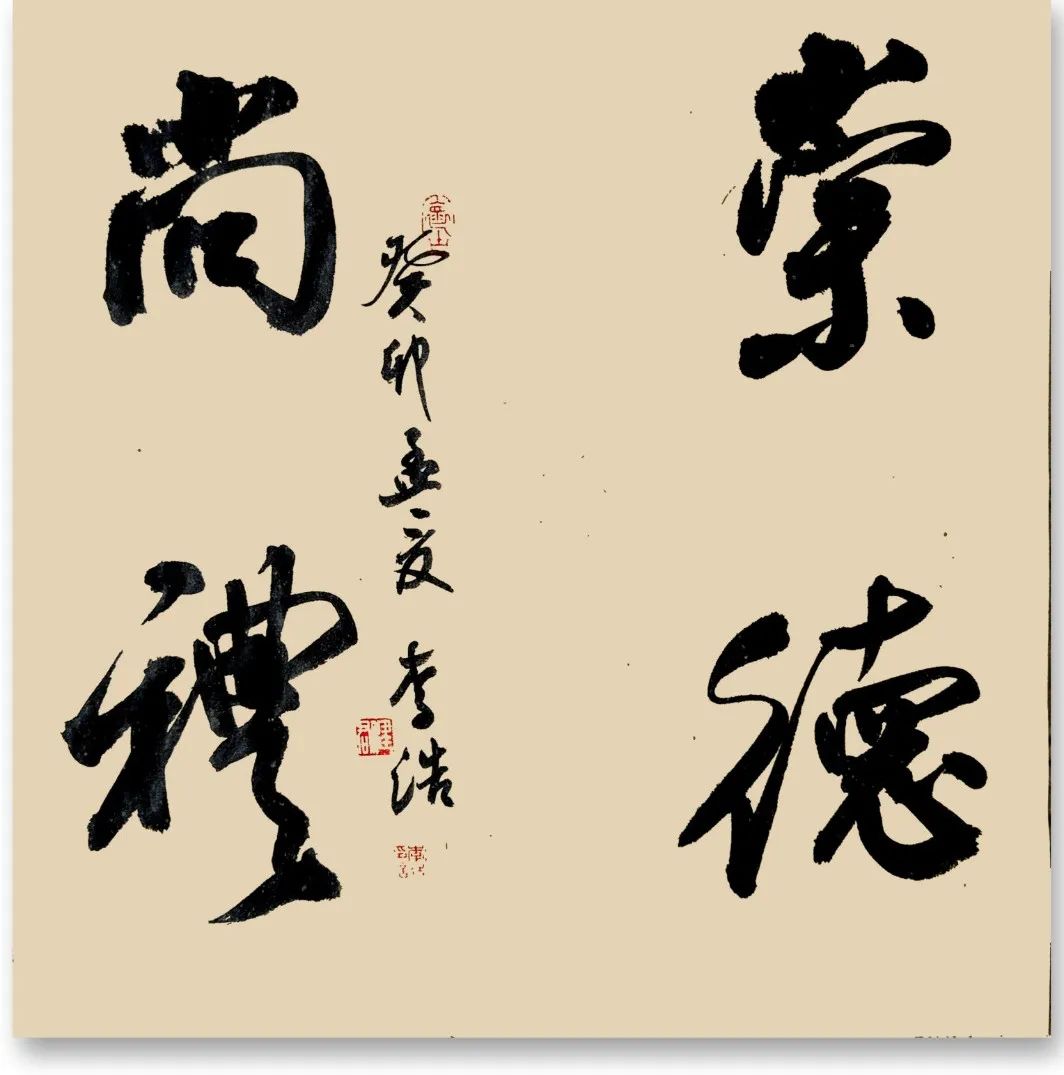 崇德
尚禮
癸卯孟夏 李浩